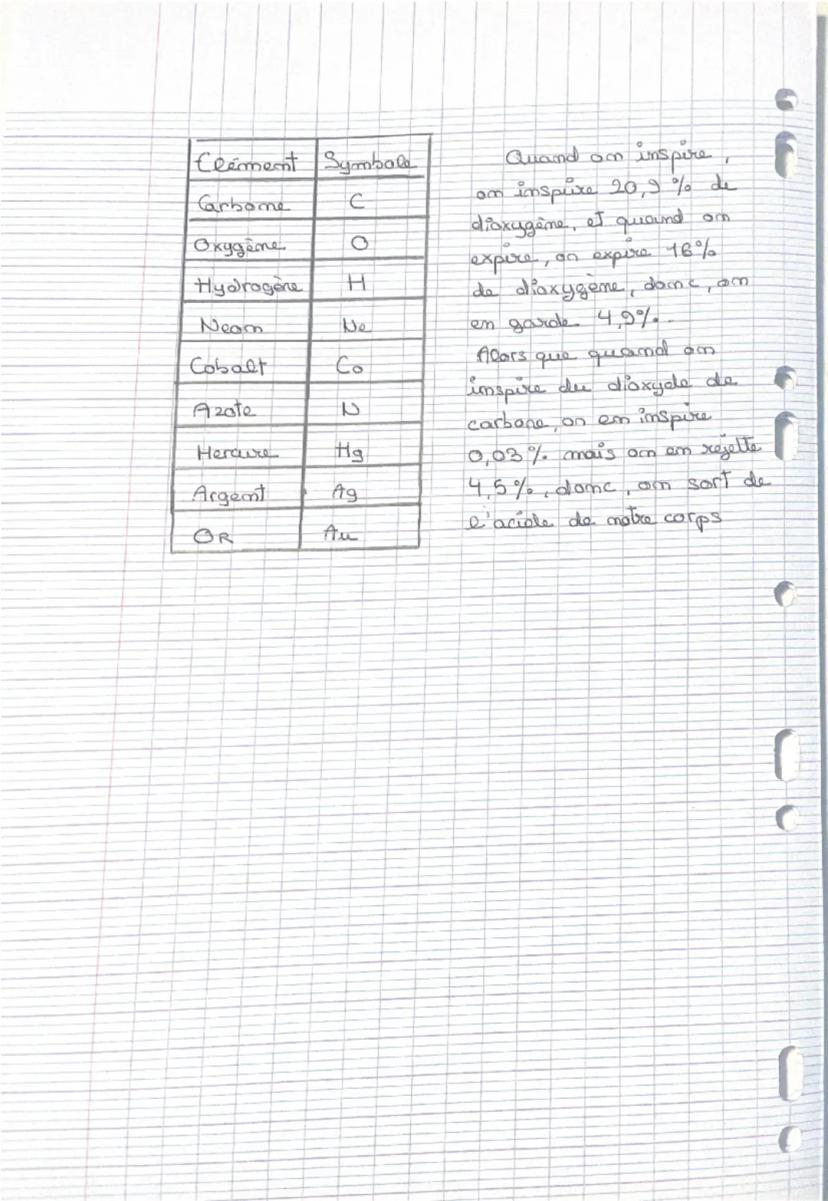 Elément Symbole
Carbone C
Oxygène O
Hydrogène H
Neon Ne
Cobalt Co
Azote N
Mercure Hg
Argent Ag
OR Au
Quand on inspire,
on inspire 20,9 % de
dioxygène, et quand on
expire, on expire 16%
de dioxygène, donc, on
en garde 4,9%.
Alors que quand on
inspire du dioxyde de
carbone, on en inspire
0,03 % mais on en rejette
4,5%, donc, on sort de
l'acide de notre corps